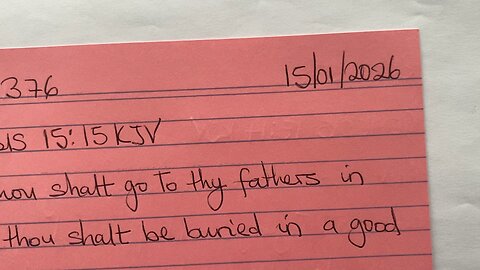 376 15/01/2026
15:15 KJV
thou shalt go to thy fathers in
thou shalt be buried in a good